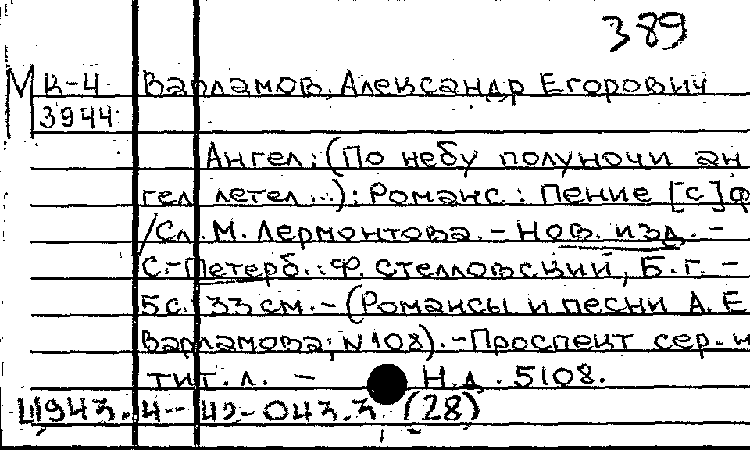 389
М К-4 Варламов, Александр Егорович
3944
Ангел: (По небу полуночи ан
гел летел...): Романс: Пение [с] ф
/Сл. М. Лермонтова. - Нов. изд. -
С.-Петерб.: Ф. Стелловский, Б.г. -
5 с. 33 см. - (Романсы и песни А. Е
Варламова; N 108). - Проспект сер. н
тит. л. - Н.д. 5108.
Ш943.4-42-043.3 (28)